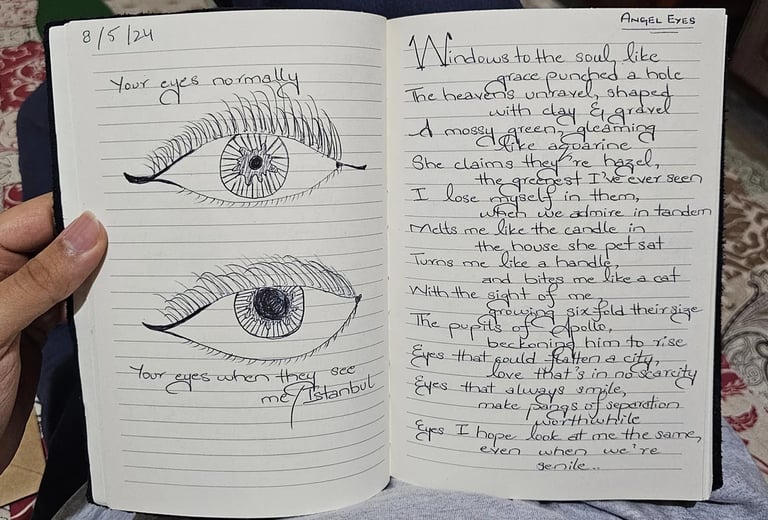 8/5/24
Your eyes normally
Your eyes when they see
me/Istanbul
ANGEL EYES
Windows to the soul, like
grace punched a hole
The heavens unravel, shaped
with clay & gravel
A mossy green, gleaming
like aquarine
She claims they're hazel,
the greenest I've ever seen
I lose myself in them,
when we admire in tandem
Melts me like the candle in
the house she pet sat
Turns me like a handle,
and bites me like a cat
With the sight of me,
growing six fold their size
The pupils of Apollo,
beckoning him to rise
Eyes that could flatten a city,
love that's in no scarcity
Eyes that always smile,
make pangs of separation
worthwhile
Eyes I hope look at me the same,
even when we're
senile..